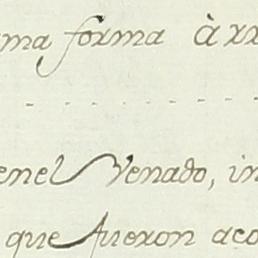 ma forma à xx
enel Venado, in
que fueron aco